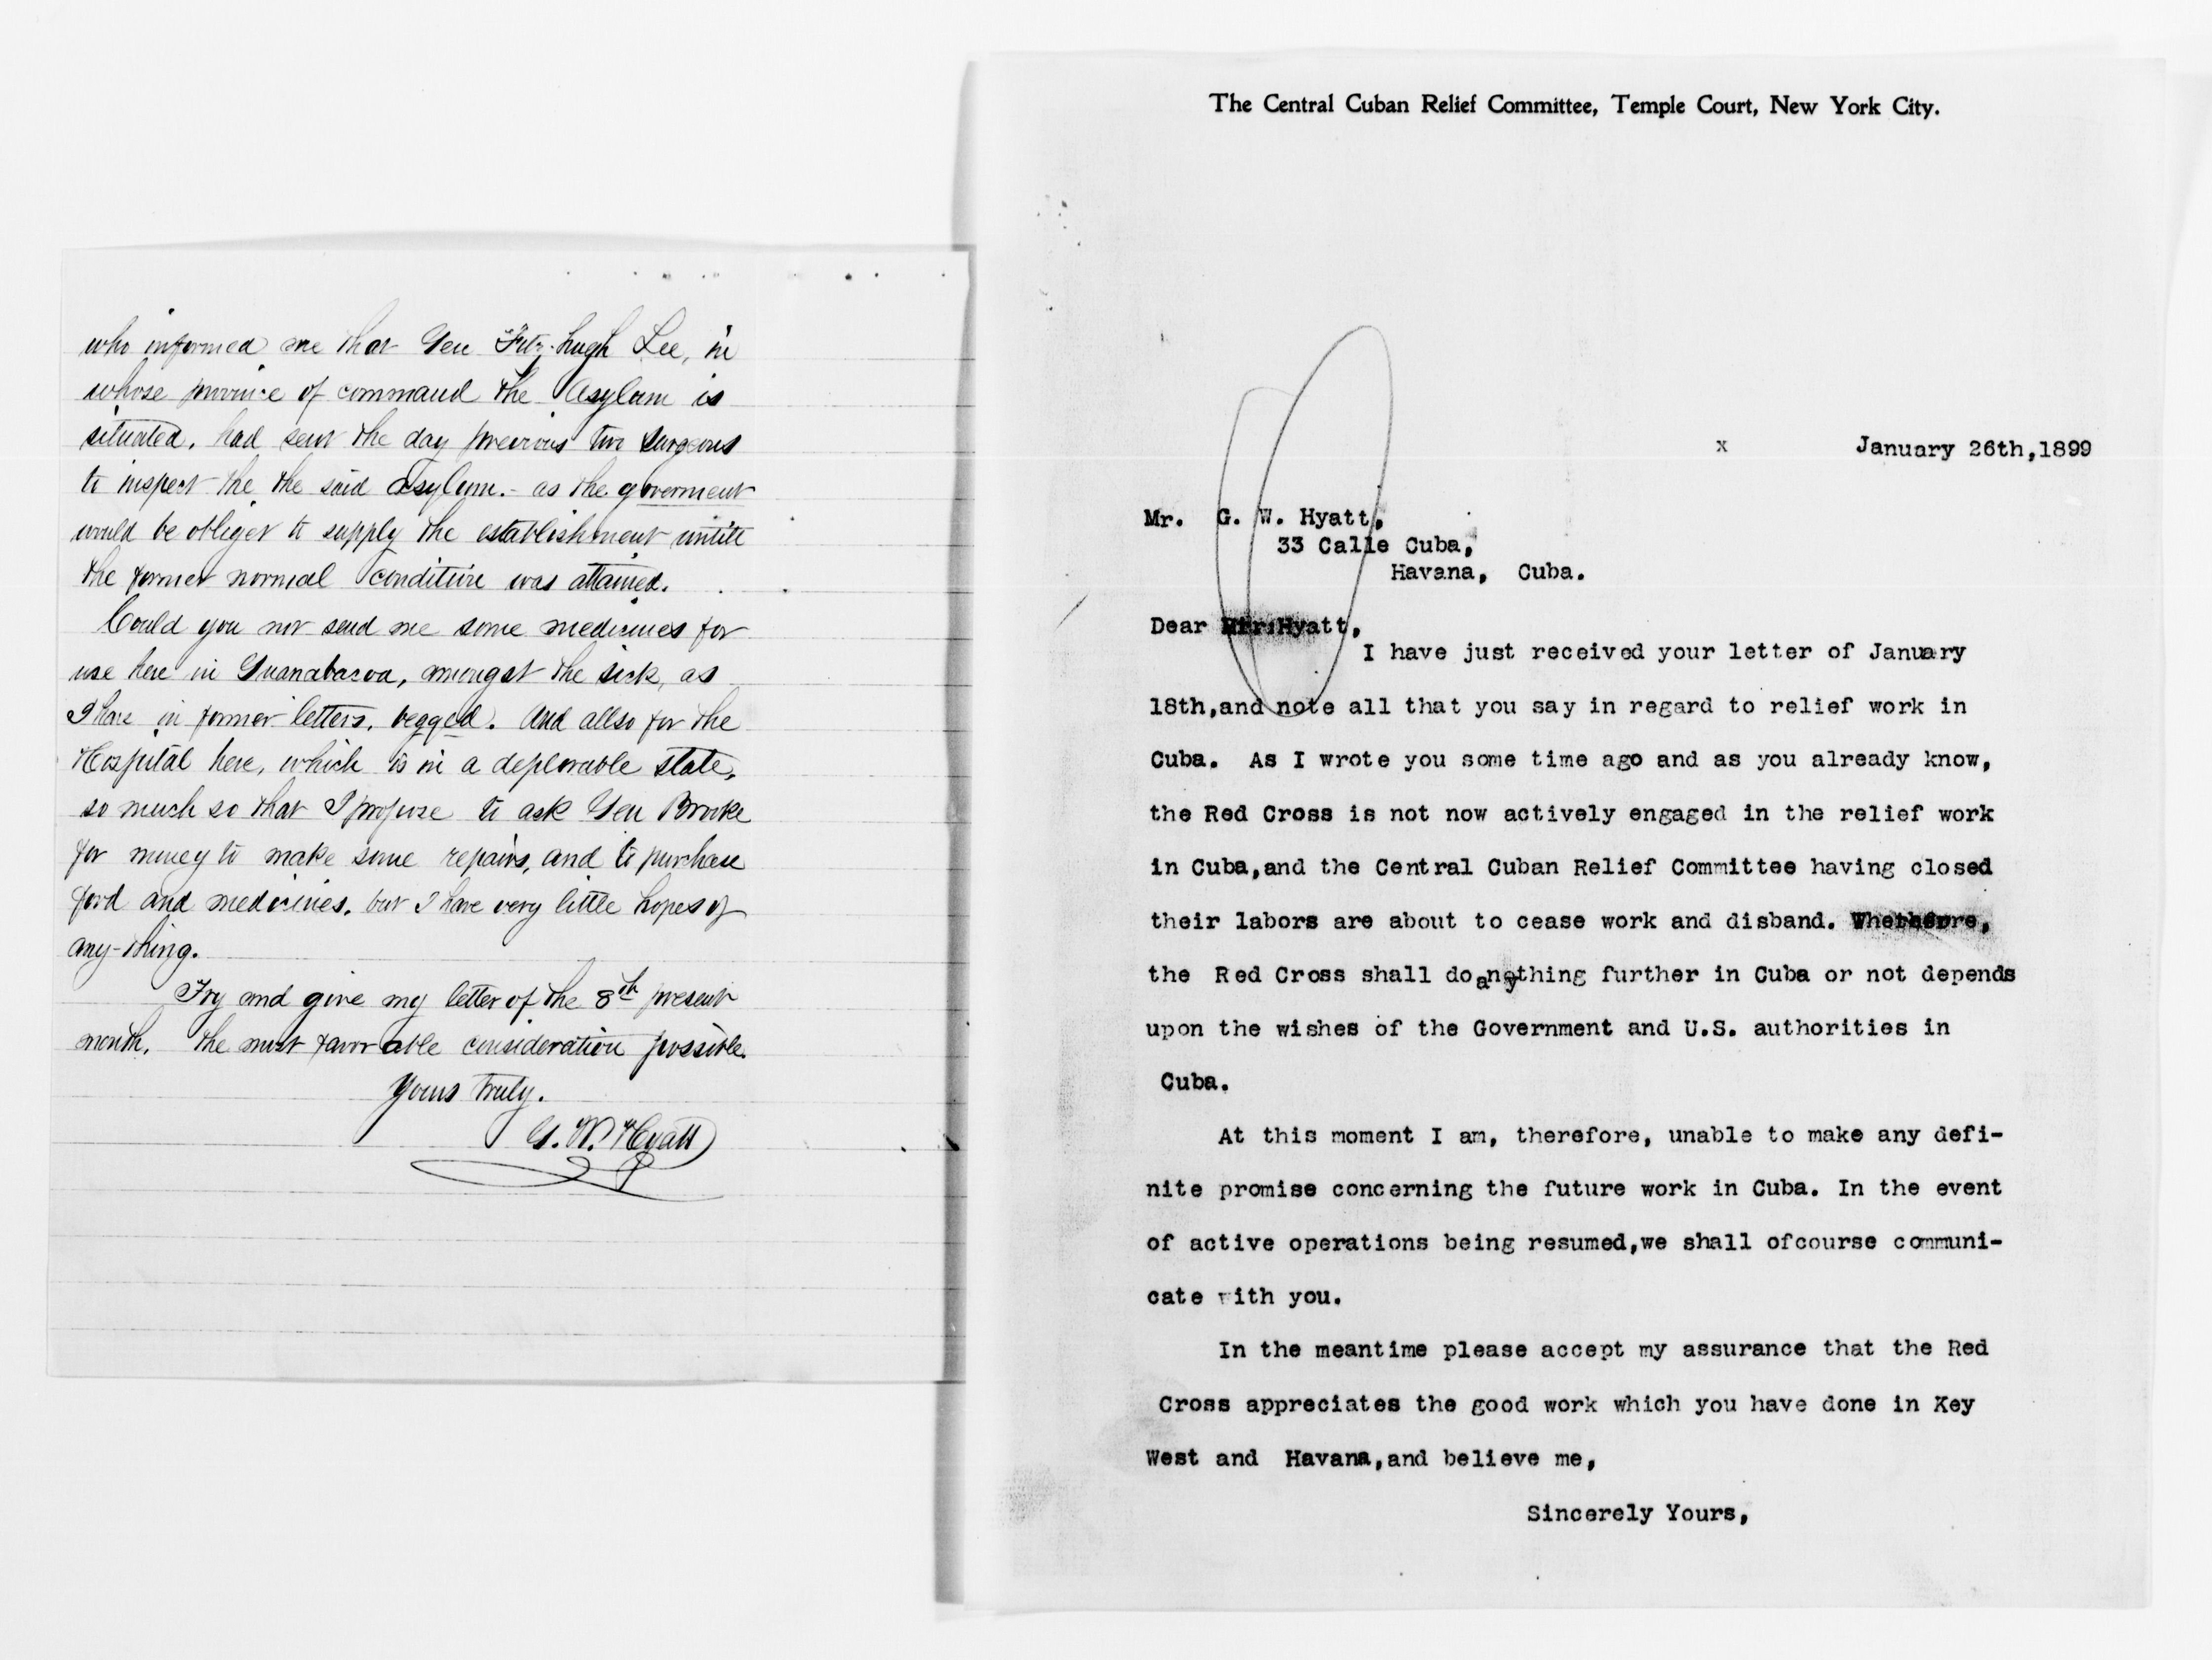 who informed me that Gen Fitz-hugh Lee, in
whose province of command the Asylum is
situated, had sent the day previous two Surgeons
to inspect the the said Asylum.- as the goverment
would be obliged to supply the establishment untill
the former normal condition was attained.
Could you not send me some medicines for
use here in Guanabacoa, amongst the sick, as
I have in former letters, begged. And allso for the
Hospital here, which is in a deplorable state,
so much so that I propose to ask Gen Brooke
for money to make some repairs, and to purchase
food and medicines, but I have very little hopes of
any-thing.
Try and give my letter of the 8th present
month, the most favorable consideration possible.
Yours truly.
G. W. Hyatt
The Central Cuban Relief Committee, Temple Court, New York City.
x January 26th,1899
Mr. G. W. Hyatt,
33 Calle Cuba,
Havana, Cuba.
Dear Mr. Hyatt,
I have just received your letter of January
18th,and note all that you say in regard to relief work in
Cuba. As I wrote you some time ago and as you already know,
the Red Cross is not now actively engaged in the relief work
in Cuba,and the Central Cuban Relief Committee having closed
their labors are about to cease work and disband.
the Red Cross shall do anything further in Cuba or not depends
upon the wishes of the Government and U.S. authorities in
Cuba.
At this moment I am, therefore, unable to make any defi-
nite promise concerning the future work in Cuba. In the event
of active operations being resumed,we shall ofcourse communi-
cate with you.
In the meantime please accept my assurance that the Red
Cross appreciates the good work which you have done in Key
West and Havana,and believe me,
Sincerely Yours,